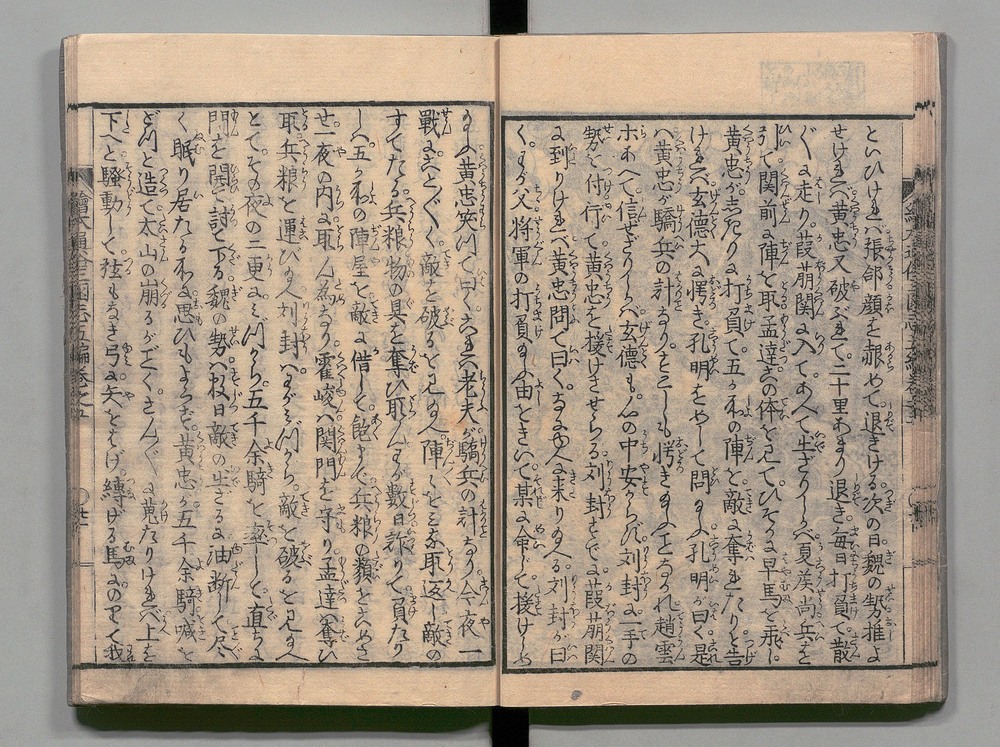 といひければ張郃顔を赧めて退きける次の日魏の勢推よ
せければ黄忠又破ぶれて二十里あまり退き毎日打負て散
ぐに走り葭萌関に入てあへて出ざりしかバ夏侯尚兵を
引て関前に陣を取孟達此体を見てひそかに早馬を飛し
黄忠がしきりに打負て五か処の陣を敵に奪れたりと告
ければ玄徳大に愕き孔明をめして問玉ふ孔明が曰く是
ハ黄忠が驕兵の計なりとこしも愕き玉ふことなかれ趙雲
ホあへて信ぜざりしかバ玄徳も心の中安からず劉封に一手の
勢を付行て黄忠を援けさせらる劉封すでに葭萌関
に到りければ黄忠問て曰くなにゆへに来り玉へる劉封が曰
く父将軍の打負玉ふ由をきいて某に命じて援けしめ
玉ふ黄忠笑つて曰く是ハ老夫が驕兵の計なり今夜一
戦にことごとく敵を破るを見玉へ陣々をミな取返し敵の
すてたる兵粮物の具を奪ひ取んため数日詐りて負たり
し五か処の陣屋を敵に借して飽まで兵粮の類をこめさ
せ一夜の内に取ん為なり霍峻ハ関門を守り孟達ハ奪ひ
取兵粮を運び玉へ劉封ハ
敵を破るを見玉へ
とてその夜の二更にミづから五千余騎を率して直ちに
門を開て討て下る魏の勢ハ数日敵の出ざるに油断して尽
く眠り居たる処に思ひもよらず黄忠が五千余騎喊を
どつと造て太山の崩るがごとくさんぐに蒐たりければ上を
下へと騒動して弦もなき弓に矢をはげ縛げる馬にのりて我